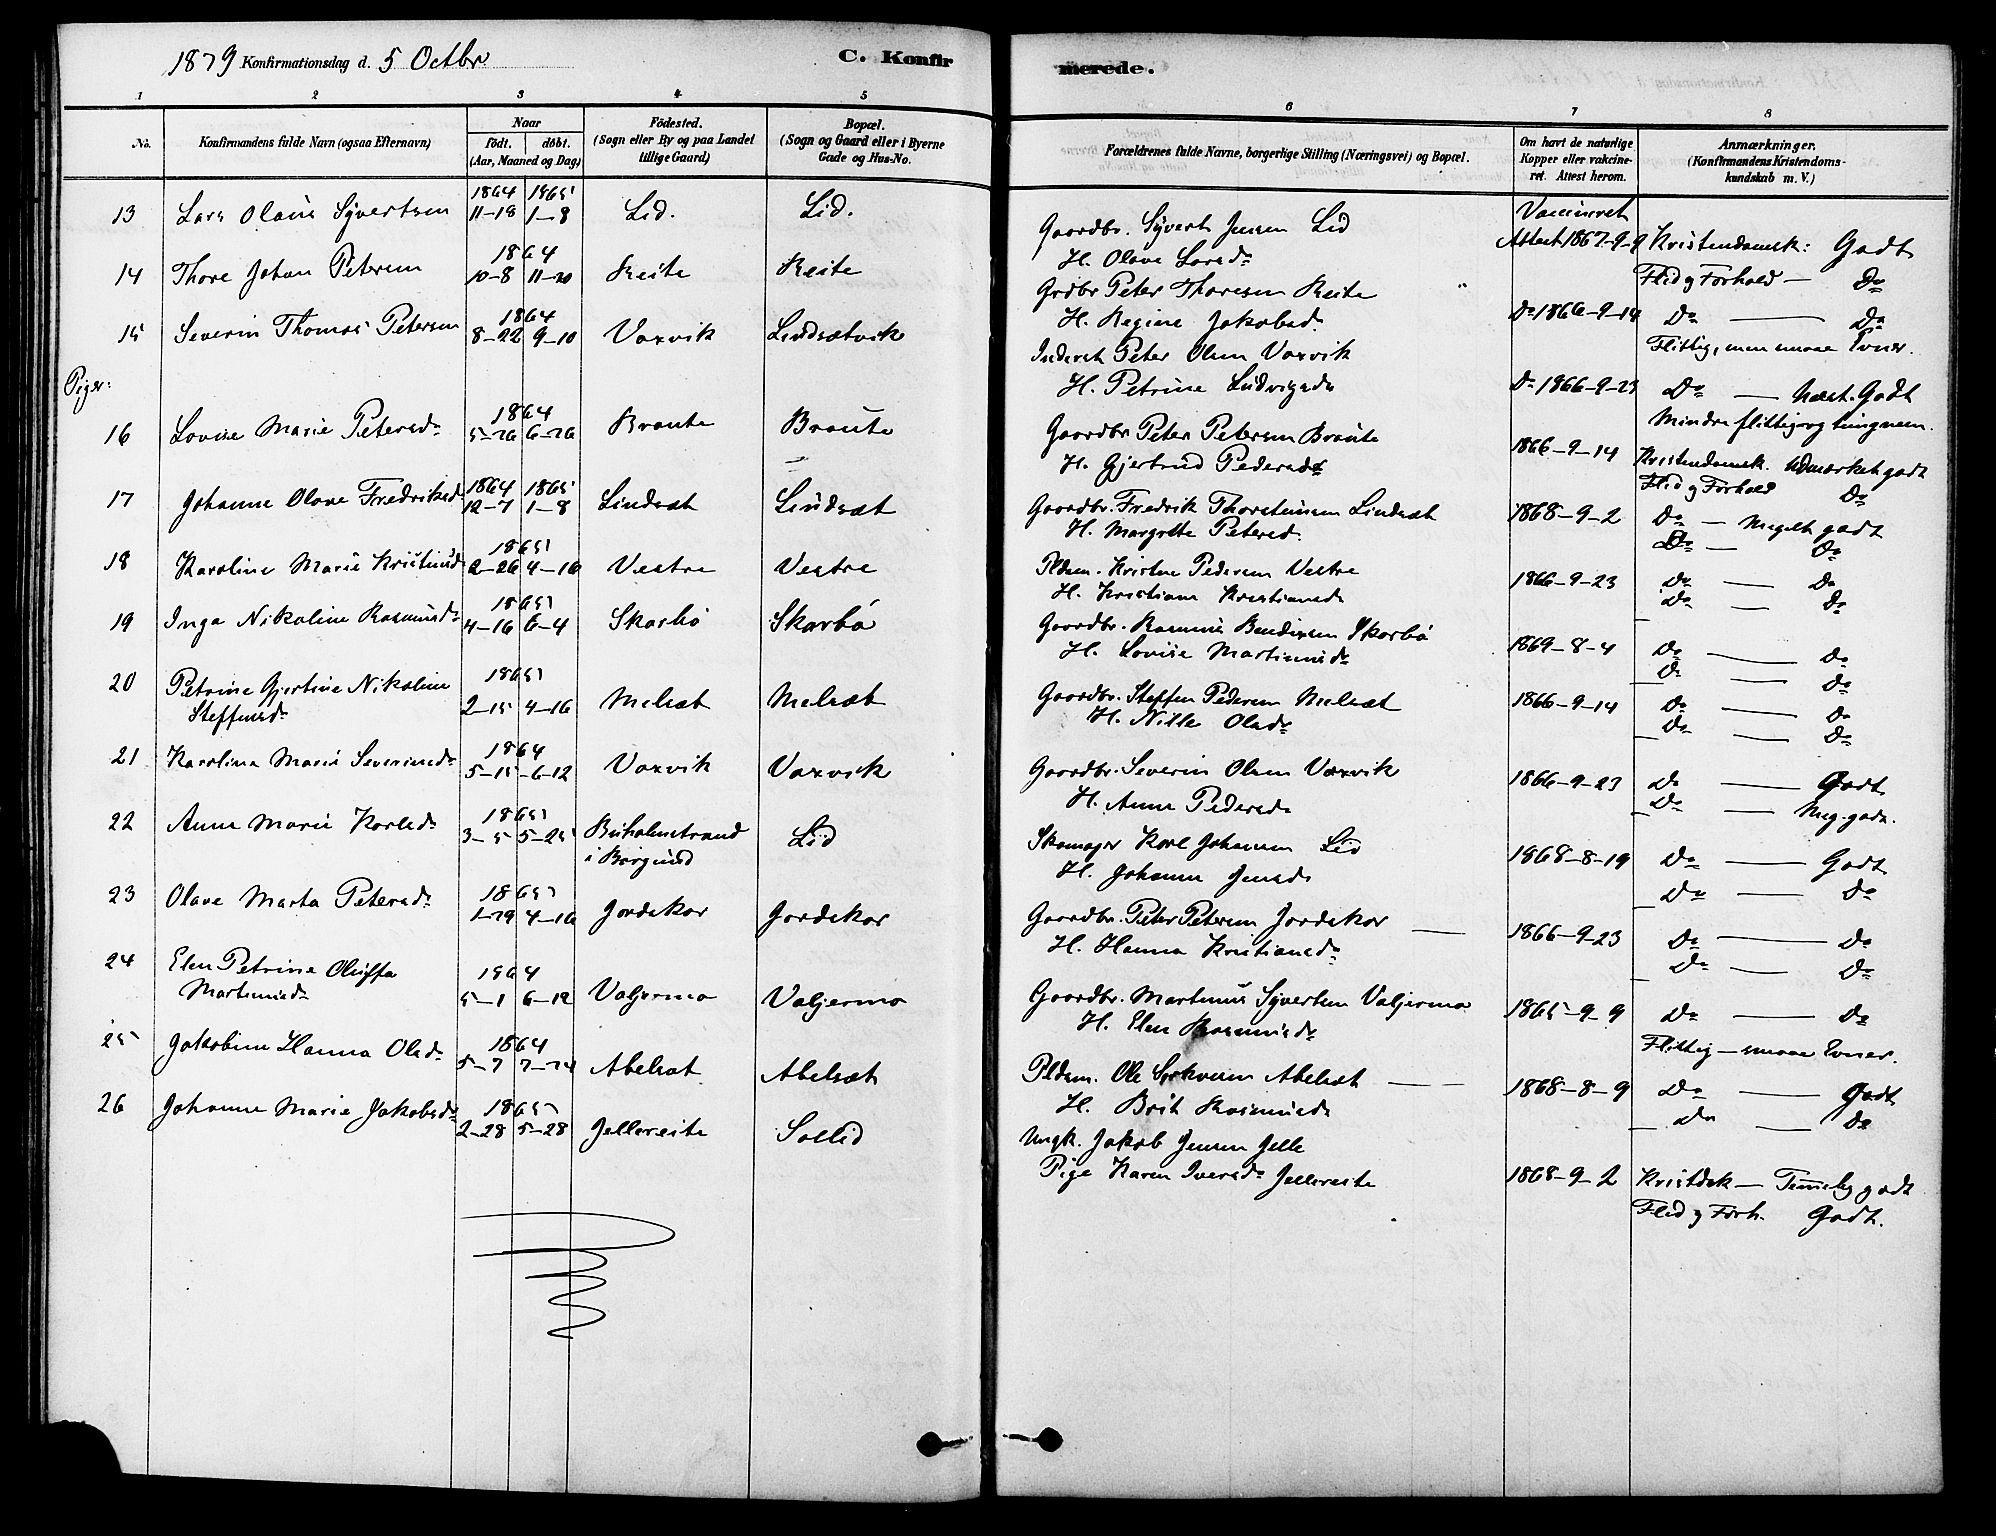 1879 Konfirmationsdag d. 5 Octbr.
C. Konfir
1 2 3 4 5
No. Konfirmandens fulde Navn (ogsaa Efternavn) Naar födt. döbt. (Aar, Maaned og Dag) Födested. (Sogn eller By og paa Landet tillige Gaard) Bopæl. (Sogn og Gaard eller i Byerne Gade og Hus-No.
1864 1865
13 Lars Olaus Syvertsen 11-18 1-8 Lid. Lid.
1864
14 Thore Johan Petersen 10-8 11-20 Reite Reite
1864
15 Severin Thomas Petersen 8-22 9-10 Vaxvik Lindsætvik
Piger:
1864
16 Lovise Marie Petersd. 5-26 6-26 Braute Braute
1864 1865
17 Johanne Olave Fredriksd. 12-7 1-8 Lindsæt Lindsæt
1865
18 Karoline Marie Kristensd. 2-26 4-16 Vestre Vestre
1865
19 Inga Nikoline Rasmusd. 4-16 6-4 Skarbö Skarbö
20 Petrine Gjertine Nikoline 1865
Steffensd. 2-15 4-16 Melsæt Melsæt
1864
21 Karoline Marie Severinsd. 5-15 6-12 Vaxvik Vaxvik
1865
22 Anne Marie Karlsd. 3-5 5-25 Buholmstrand Lid
i Borgund
1865
23 Olave Marta Petersd. 1-29 4-16 Jordskar Jordskar
24 Elen Petrine Oluffa 1864
Martinusd. 5-1 6-12 Valjermo Valjermo
1864
25 Jakobine Hanna Olsd. 5-7 7-24 Abelsæt Abelsæt
1865
26 Johanne Marie Jakobsd. 2-28 5-28 Jellereite Sollid
merede.
6 7 8
Forældrenes fulde Navne, borgerlige Stilling (Næringsvei) og Bopæl. Om havt de naturlige Kopper eller vakcineret. Attest herom. Anmærkninger. (Konfirmandens Kristendomskundskab m. V.)
Gaardbr. Syvert Jensen Lid Vaccineret
H. Olave Larsd. Attest 1867-9-9 Kristendomsk: Godt
Grdbr Peter Thoresen Reite Flid og Forhold - Do
H. Regine Jakobsd. Do 1866-9-14 Do — Do
Inderst Peter Olsen Vaxvik Flittig, men smaae Evner.
H. Petrine Ludvigsd. Do 1866-9-23 Do — Næst. Godt
Gaardbr Peter Petersen Braute Mindre flittig og tungnem.
H. Gjertrud Pedersd. 1866-9-14 Kristendomsk. Udmærket godt
Flid og Forhold Do
Gaardbr. Fredrik Thorsteinsen Lindsæt 1868-9-2 Do — Meget godt
H. Margrete Petersd. Do — Do
Pldsm. Kristen Pedersen Vestre 1866-9-23 Do — Do
H. Kristiane Kristiansd. Do — Do
Gaardbr. Rasmus Bendixsen Skarbö 1869-8-4 Do — Do
H. Lovise Martinusd. Do — Do
Gaardbr. Steffen Pedersen Melsæt 1866-9-14 Do — Do
H. Nille Olsd. Do — Do
Gaardbr. Severin Olsen Vaxvik 1866-9-23 Do — Godt
H. Anne Pedersd. Do — Meg. godt.
Skomager Karl Johansen Lid 1868-8-19 Do — Godt
H. Johanne Jensd. Do — Do
Gaardbr. Peter Petersen Jordskar — 1866-9-23 Do — Do
H. Hanna Kristiansd. Do — Do
Gaardbr. Martinus Syvertsen Valjermo 1865-9-9 Do — Do
H. Elen Rasmusd. Flittig - smaae Evner.
Pldsm. Ole Abelsæt — 1868-8-9 Do — Godt
H. Brit Rasmusd. Do — Do
Ungk. Jakob Jensen Jelle
Pige Karen Iversd. Jellereite 1868-9-2 Kristdsk - Temmelig godt
Flid og Forh. Godt.